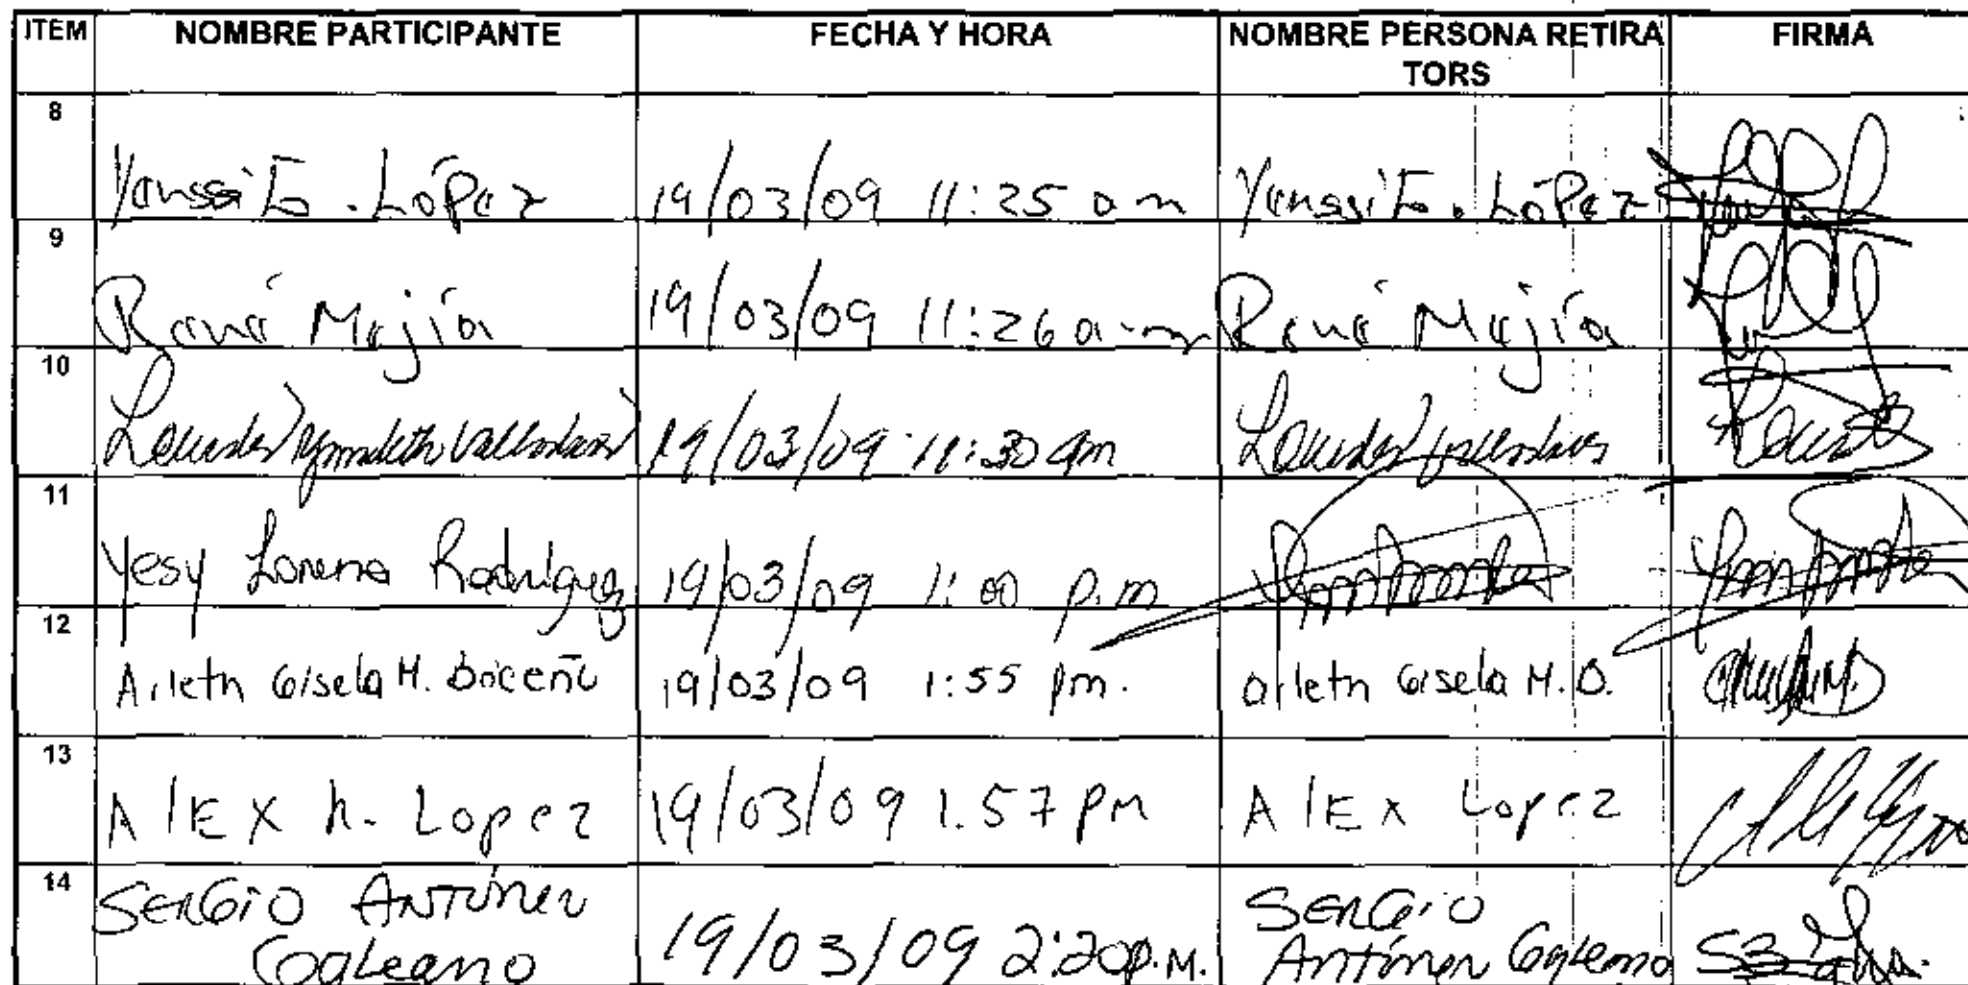 ITEM NOMBRE PARTICIPANTE FECHA Y HORA NOMBRE PERSONA RETIRA TORS FIRMA
8 Yanssi E. López 19/03/09 11:25 am Yanssi E. López
9 René Mejía 19/03/09 11:26 a.m René Mejía
10 Lourdes 19/03/09 11:30 am Lourdes
11 Yesy Lorena Rodríguez 19/03/09 1:00 p.m
12 Arleth Gisela M. Briceño 19/03/09 1:55 pm. Arleth Gisela M. B.
13 AlEx h. Lopez 19/03/09 1.57 PM AlEx Lopez
14 SERGiO ANTúnez
Galeano 19/03/09 2:20 P.M. SERGiO
Antúnez Galeano